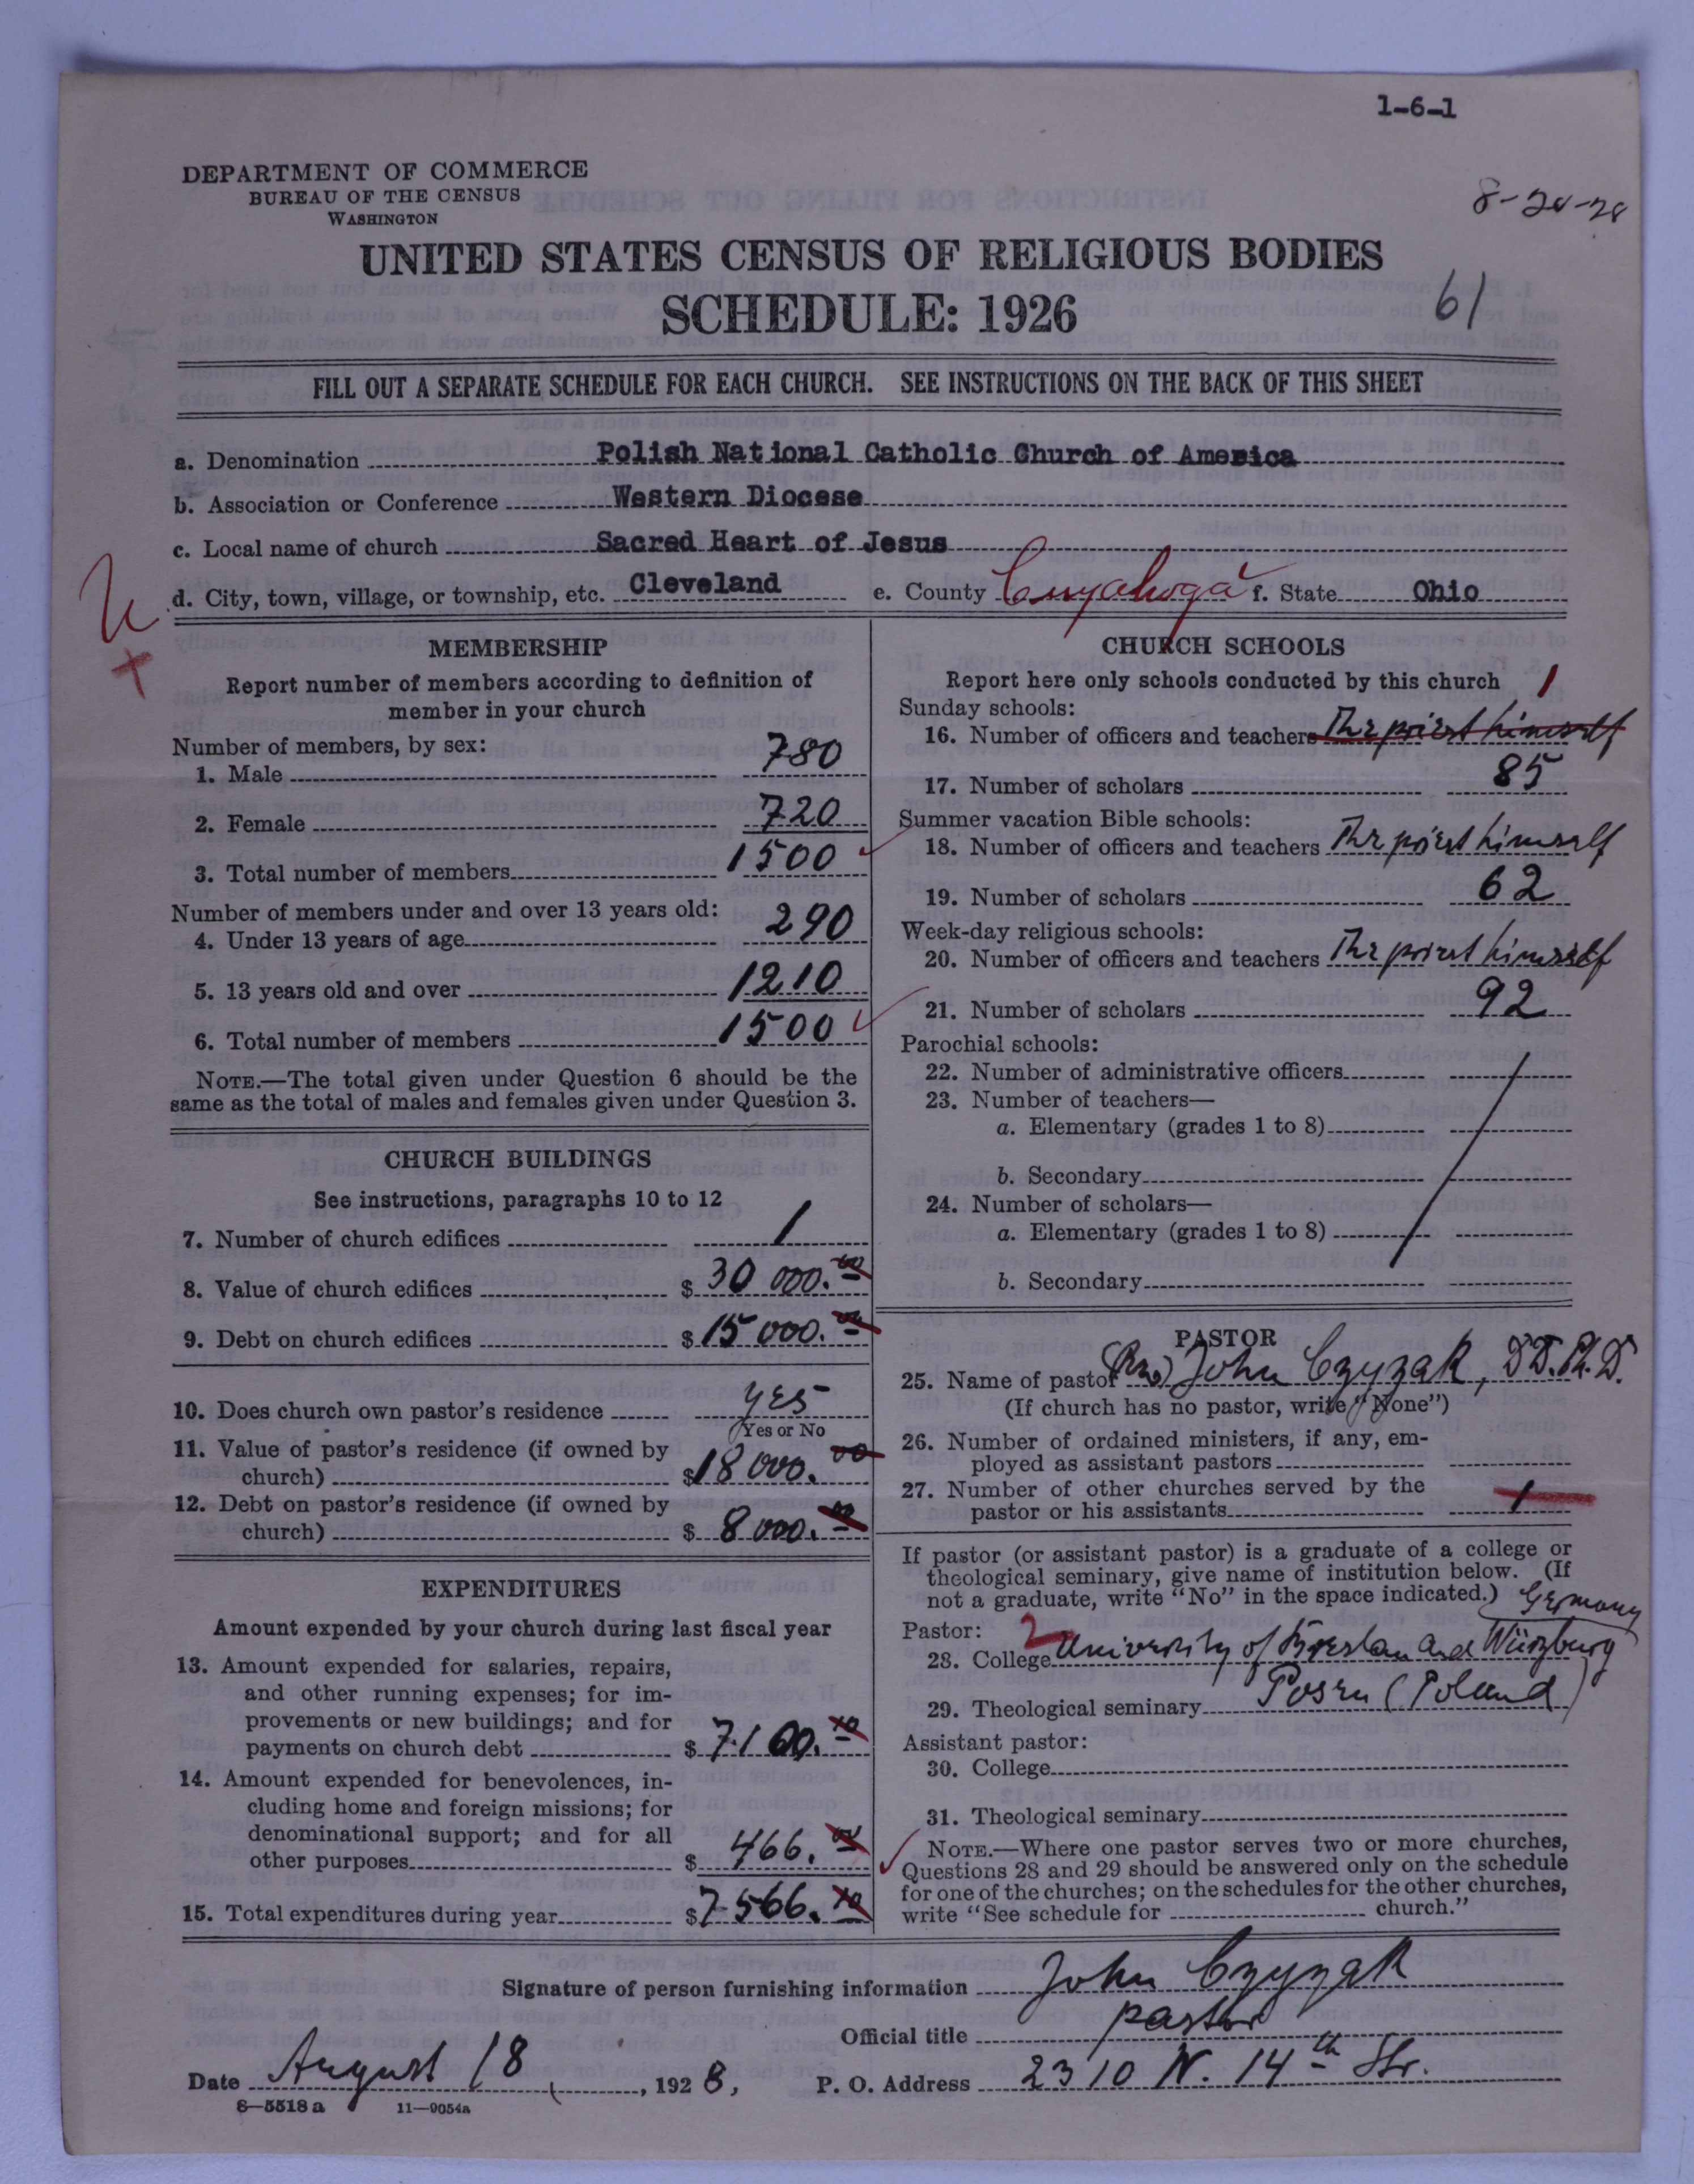 1-6-1
DEPARTMENT OF COMMERCE
BUREAU OF THE CENSUS
WASHINGTON
8-20-28
UNITED STATES CENSUS OF RELIGIOUS BODIES
SCHEDULE: 1926
61
FILL OUT A SEPARATE SCHEDULE FOR EACH CHURCH. SEE INSTRUCTIONS ON THE BACK OF THIS SHEET
a. Denomination Polish National Catholic Church of America
b. Association or Conference Western Diocese
c. Local name of church Sacred Heart of Jesus
d. City, town, village, or township, etc. Cleveland e. County Cuyahoga f. State Ohio
MEMBERSHIP
Report number of members according to definition of
member in your church
Number of members, by sex:
1. Male 780
2. Female 720
3. Total number of members 1500
Number of members under and over 13 years old:
4. Under 13 years of age 290
5. 13 years old and over 1210
6. Total number of members 1500
NOTE.—The total given under Question 6 should be the
same as the total of males and females given under Question 3.
CHURCH BUILDINGS
See instructions, paragraphs 10 to 12
7. Number of church edifices 1
8. Value of church edifices $ 30 000.00
9. Debt on church edifices $ 15 000.00
10. Does church own pastor's residence yes
Yes or No
11. Value of pastor's residence (if owned by
church) $ 18 000.00
12. Debt on pastor's residence (if owned by
church) $ 8 000.00
EXPENDITURES
Amount expended by your church during last fiscal year
13. Amount expended for salaries, repairs,
and other running expenses; for im-
provements or new buildings; and for
payments on church debt $ 7.100.10
14. Amount expended for benevolences, in-
cluding home and foreign missions; for
denominational support; and for all
other purposes $ 466.00
15. Total expenditures during year $ 7566.10
CHURCH SCHOOLS
Report here only schools conducted by this church 1
Sunday schools:
16. Number of officers and teachers The priest himself
17. Number of scholars 85
Summer vacation Bible schools:
18. Number of officers and teachers The priest himself
19. Number of scholars 62
Week-day religious schools:
20. Number of officers and teachers The priest himself
21. Number of scholars 92
Parochial schools:
22. Number of administrative officers
23. Number of teachers—
a. Elementary (grades 1 to 8)
b. Secondary
24. Number of scholars—
a. Elementary (grades 1 to 8)
b. Secondary
PASTOR
25. Name of pastor (Rev) John Czyzak, D.D. Ph. D.
(If church has no pastor, write "None")
26. Number of ordained ministers, if any, em-
ployed as assistant pastors
27. Number of other churches served by the
pastor or his assistants 1
If pastor (or assistant pastor) is a graduate of a college or
theological seminary, give name of institution below. (If
not a graduate, write "No" in the space indicated.) Germany
Pastor: 2
28. College University of Breslau and Würzburg
29. Theological seminary Posen (Poland)
Assistant pastor:
30. College
31. Theological seminary
NOTE.—Where one pastor serves two or more churches,
Questions 28 and 29 should be answered only on the schedule
for one of the churches; on the schedules for the other churches,
write "See schedule for church."
Signature of person furnishing information John Czyzak
Official title pastor
Date August 18, 1928, P. O. Address 2310 W. 14th Str.
8—5518a 11—9054a